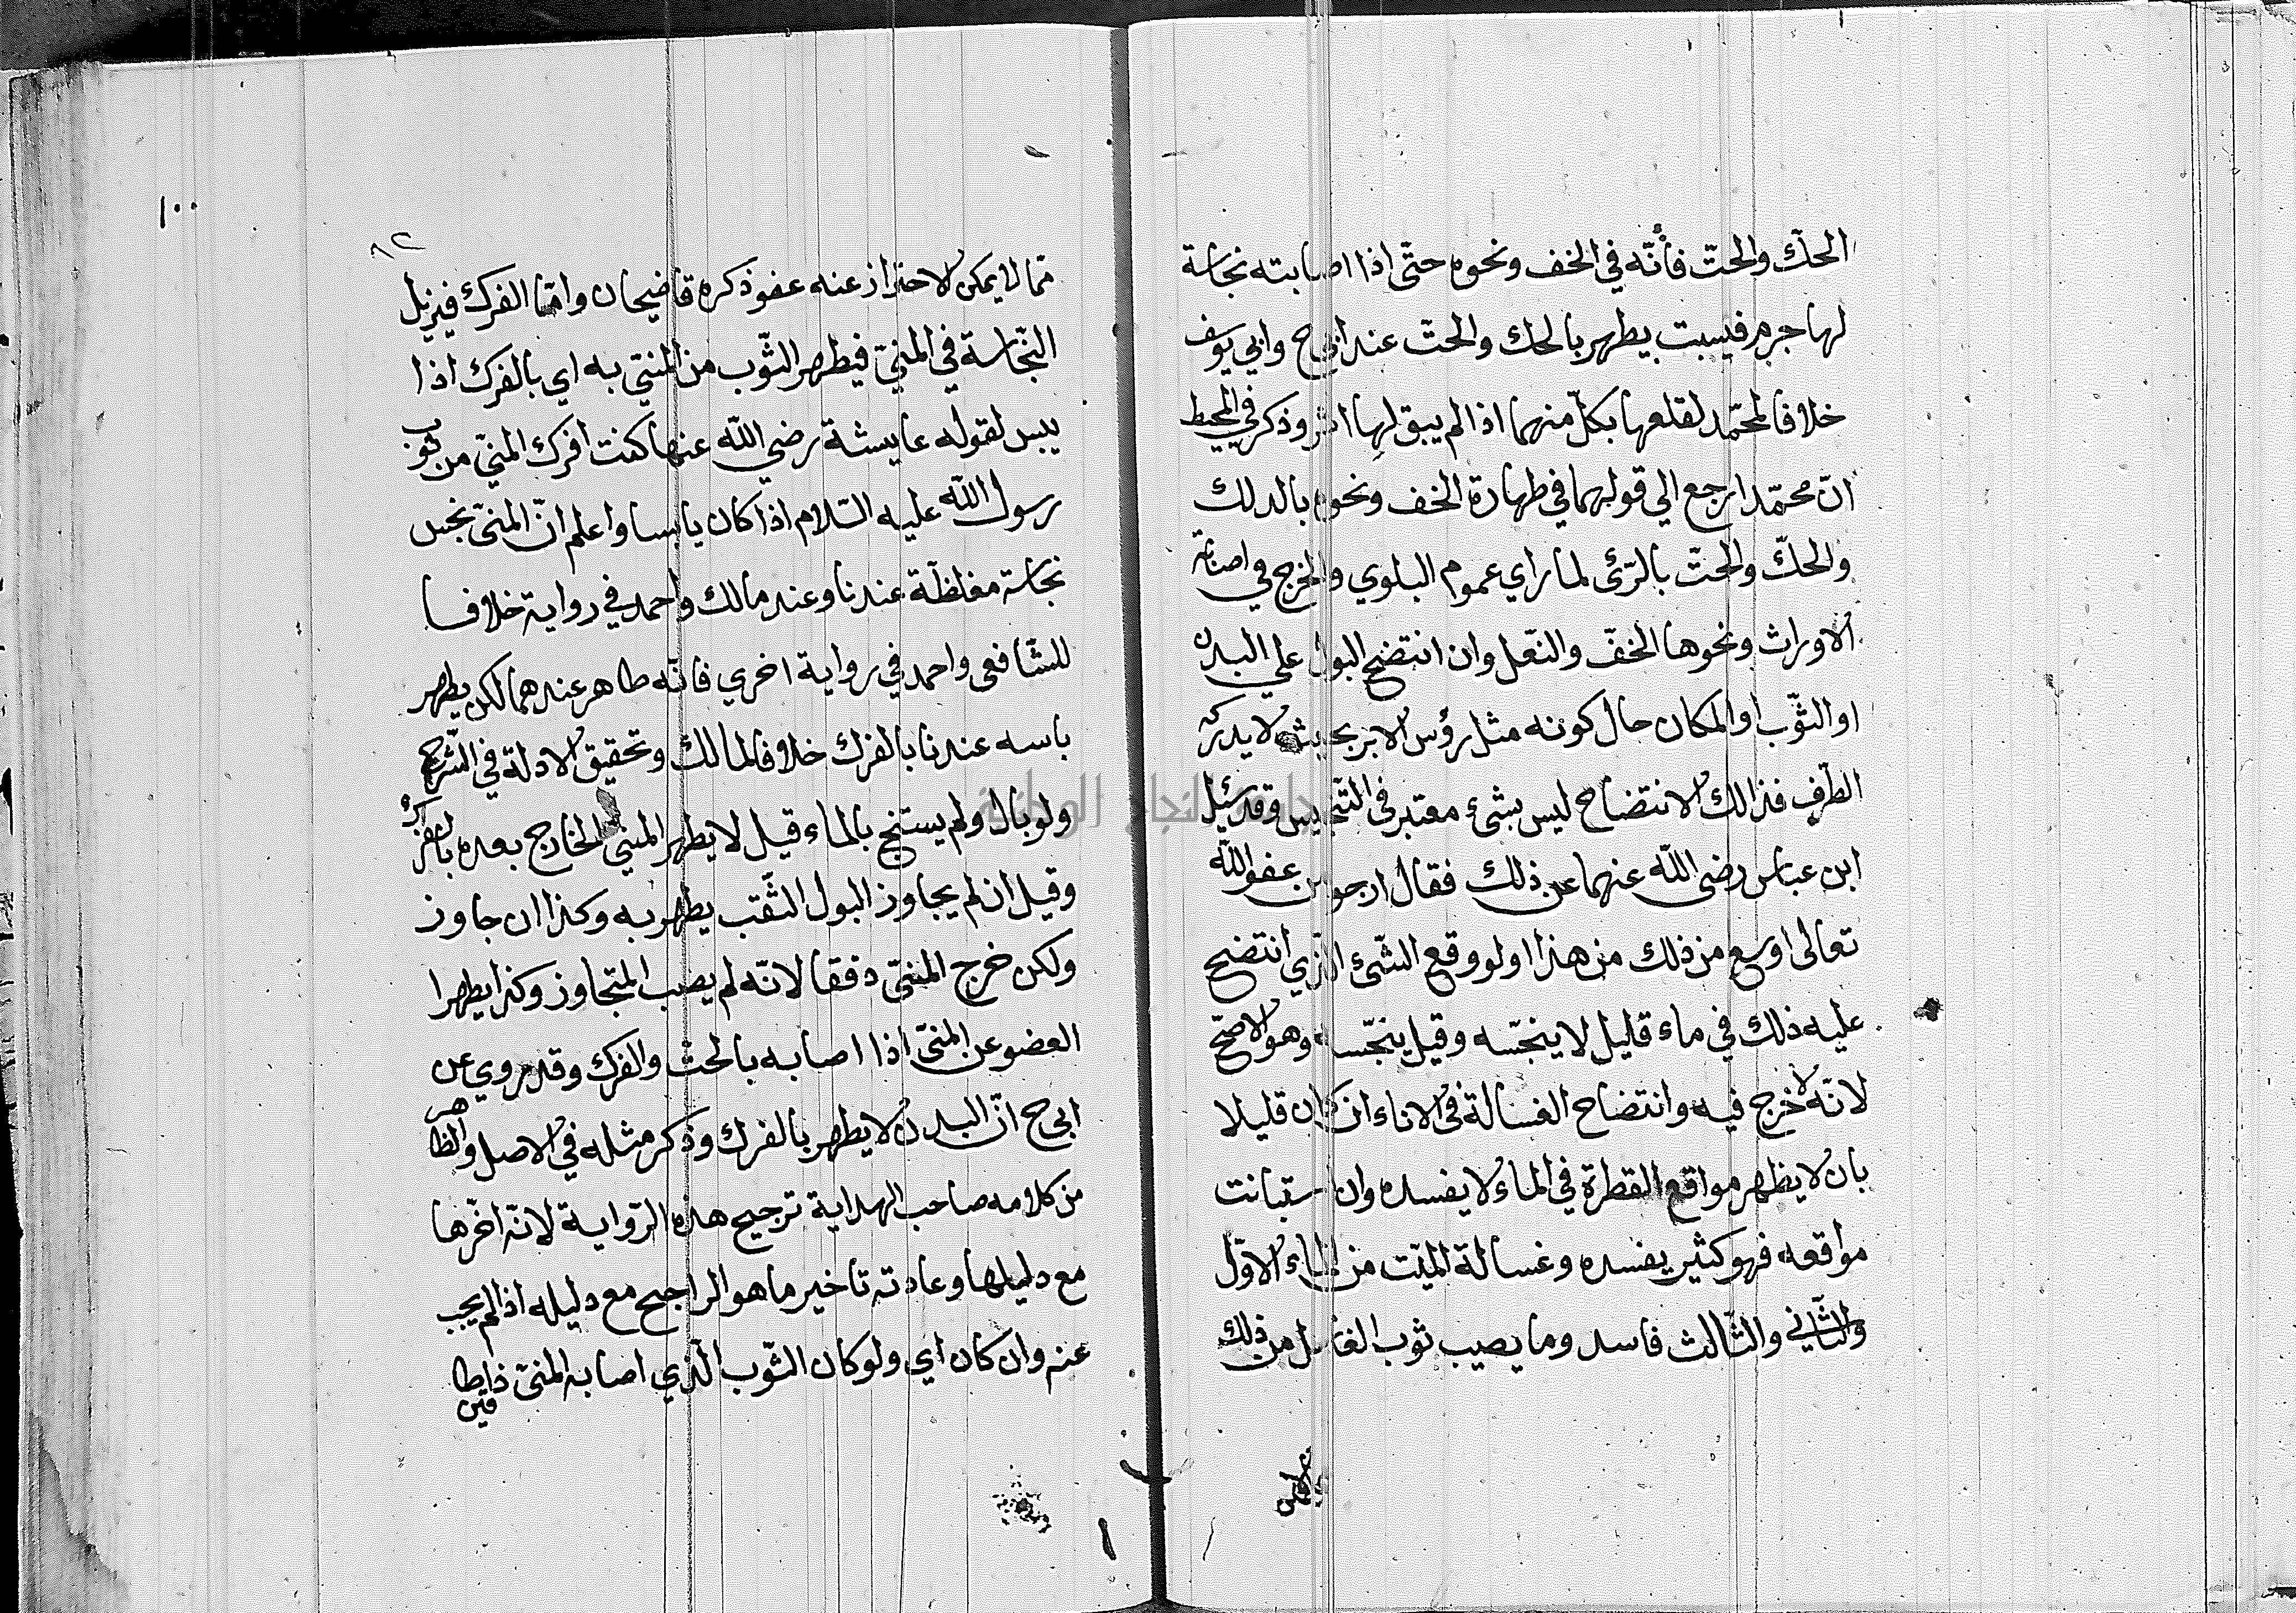 الحك والحتّ فأنّه في الخف ونحوه حتّى اذا اصابته نجاسة
لها جرم فيبست يطهر بالحك والحتّ عند ابي ح وابي يوسف
خلافا لمحمّد لقلعها بكلّ منهما اذا لم يبق لها اثر وذكر في المحيط
انّ محمّدا رجع الي قولهما في طهارة الخف ونحوه بالدلك
والحكّ والحتّ بالرّئ لما راي عموم البلوي والحرج في اصابة
الاوراث ونحوها الخفّ والنّعل وان انتضح البول علي البدن
او الثّوب او المكان حال كونه مثل رؤس الابر بحيث لا يدركه
الطّرف فذالك الانتضاح ليس بشئ معتبر في التّنجيس وقد سئل
ابن عباس رضى اللّه عنهما عن ذلك فقال ارجو من عفو اللّه
تعالى اوسع من ذلك من هذا ولو وقع الشّئ الّذي انتضح
عليه ذلك في ماء قليل لا ينجّسه وقيل ينجّسه وهو الاصحّ
لانّه لا حرج فيه وانتضاح الغسالة فى الاناء ان كان قليلا
بان لا يظهر مواقع القطرة في الماء لا يفسده وان استبانت
مواقعه فهو كثير يفسده وغسالة الميّت من الماء الاوّل
والثّاني والثّالث فاسد وما يصيب ثوب الغاسل من ذلك
١٠٠
٨٢
ممّا لا يمكن الاحتراز عنه عفو ذكره قاضيخان وامّا الفرك فيزيل
النّجاسة في المنيّ فيطهر الثّوب من المنيّ به اي بالفرك اذا
يبس لقوله عايشة رضي اللّه عنها كنت افرك المنيّ من ثوب
رسول اللّه عليه السّلام اذا كان يابسا واعلم انّ المنيّ نجس
نجاسة مغلظة عندنا وعند مالك واحمد في رواية خلافا
للشّافعى واحمد في رواية اخري فانّه طاهر عندهما لكن يطهر
ياسه عندنا بالفرك خلافا لمالك وتحقيق الادلة في الشّرح
ولو بال ولم يستنج بالماء قيل لا يطهر المنيّ الخارج بعده بالفرك
وقيل ان لم يجاوز البول الثّقب يطهر به وكذا ان جاوز
ولكن خرج المنيّ دفقا لانّه لم يصب المتجاوز وكذا يطهر ا
العضو عن المنيّ اذا اصابه بالحت والفرك وقد روي عن
ابي ح انّ البدن لا يطهر بالفرك وذكر مثله في الاصل والظاهر
من كلامه صاحب الهداية ترجيح هذه الرّواية لانّه اخّرها
مع دليلها وعادته تاخير ما هو الراجح مع دليله اذا لم يجب
عنه وان كان اي ولو كان الثّوب الّذي اصابه المنيّ ذا طاقين